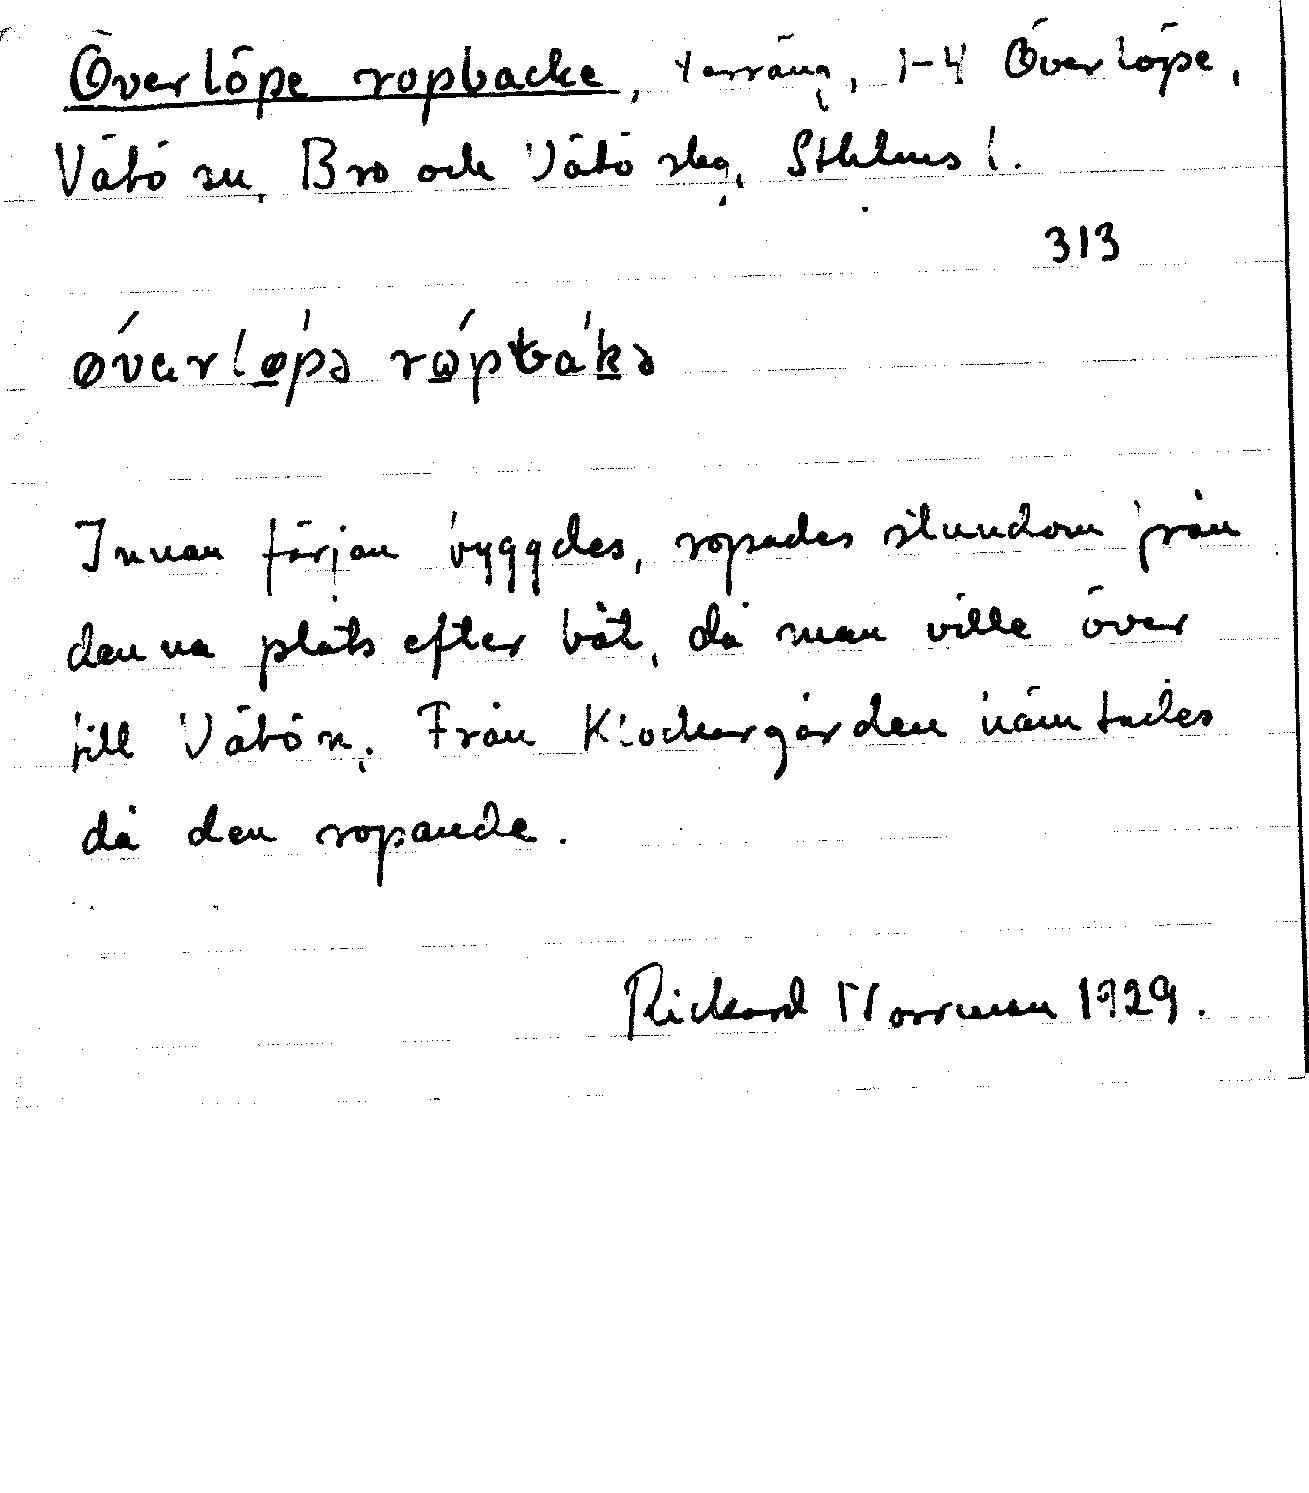 Överlöpe ropbacke, terräng, 1-4 Överlöpe,
Vätö sn, Bro och Vätö skg, Sthlms l.
313
øv́ɑrlø̱pə rω̱ṕbaḵə
Innan färjan byggdes, ropades stundom från
denna plats efter båt, då man ville över
till Vätön. Från Klockargården hämtades
då den ropande.
Rickard Norrman 1929.